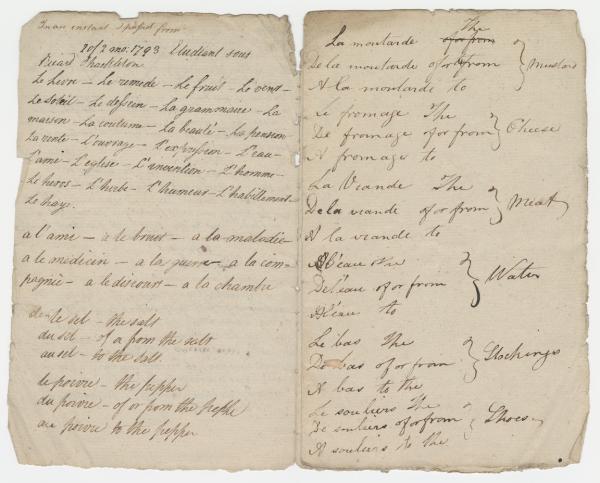 In an instant I passed from
2 of 2 mo. 1793 Etudiant sous
Ricard Thorpleton
Le livre – Le remede – Le fruit – Le vent –
Le soleil – Le dessein – La grammaire – La
maison – La coutume – La beauté – La pension
La vente – L'ouvrage – L'expression – L'eau –
L'ame – L'eglise – L'invention – L'homme –
Le heros – L'herbe – L'humeur – L'habillement –
Le hay.
a l'ami – a le bruit – a la maladie
a le medicin – a la guerre – a la com-
pagnie – a le discours – a la chambre
le sel – the salt
du sel – of a from the salt
au sel – to the salt
le poivre – the pepper
du poivre – of or from the pepple
au poivre to the pepper
La moutarde The
De la moutarde of or from } Mustard
A la moutarde to
Le fromage The
De fromage of or from } Cheese
A fromage to
La Viande The
De la viande of or from } Meat
A la viande to
L'eau The
De l'eau of or from } Water
A l'eau to
Le bas The
De bas of or from } Stockings
A bas to the
Le souliers The
De souliers of or from } Shoes
A souliers to the